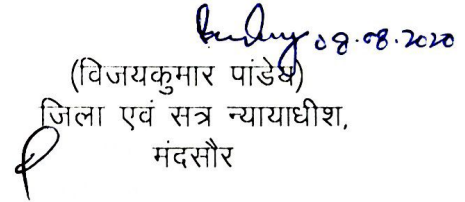 08.08.2020
(विजयकुमार पांडेय)
जिला एवं सत्र न्यायाधीश,
मंदसौर